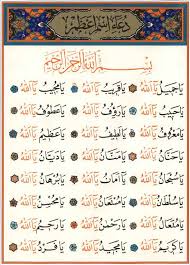 دعاء اسم اعظم
بسم الله الرحمن الرحيم
يا جميل يا الله يا قريب يا الله يا مجيب يا الله
يا حبيب يا الله يا رؤف يا الله يا عطوف يا الله
يا معروف يا الله يا لطيف يا الله يا عظيم يا الله
يا حنان يا الله يا منان يا الله يا ديان يا الله
يا سبحان يا الله يا امان يا الله يا برهان يا الله
يا سلطان يا الله يا مستعان يا الله يا يا الله
يا متعال يا الله يا رحمن يا الله يا رحيم يا الله
يا كريم يا الله يا مجيد يا الله يا فرد يا الله